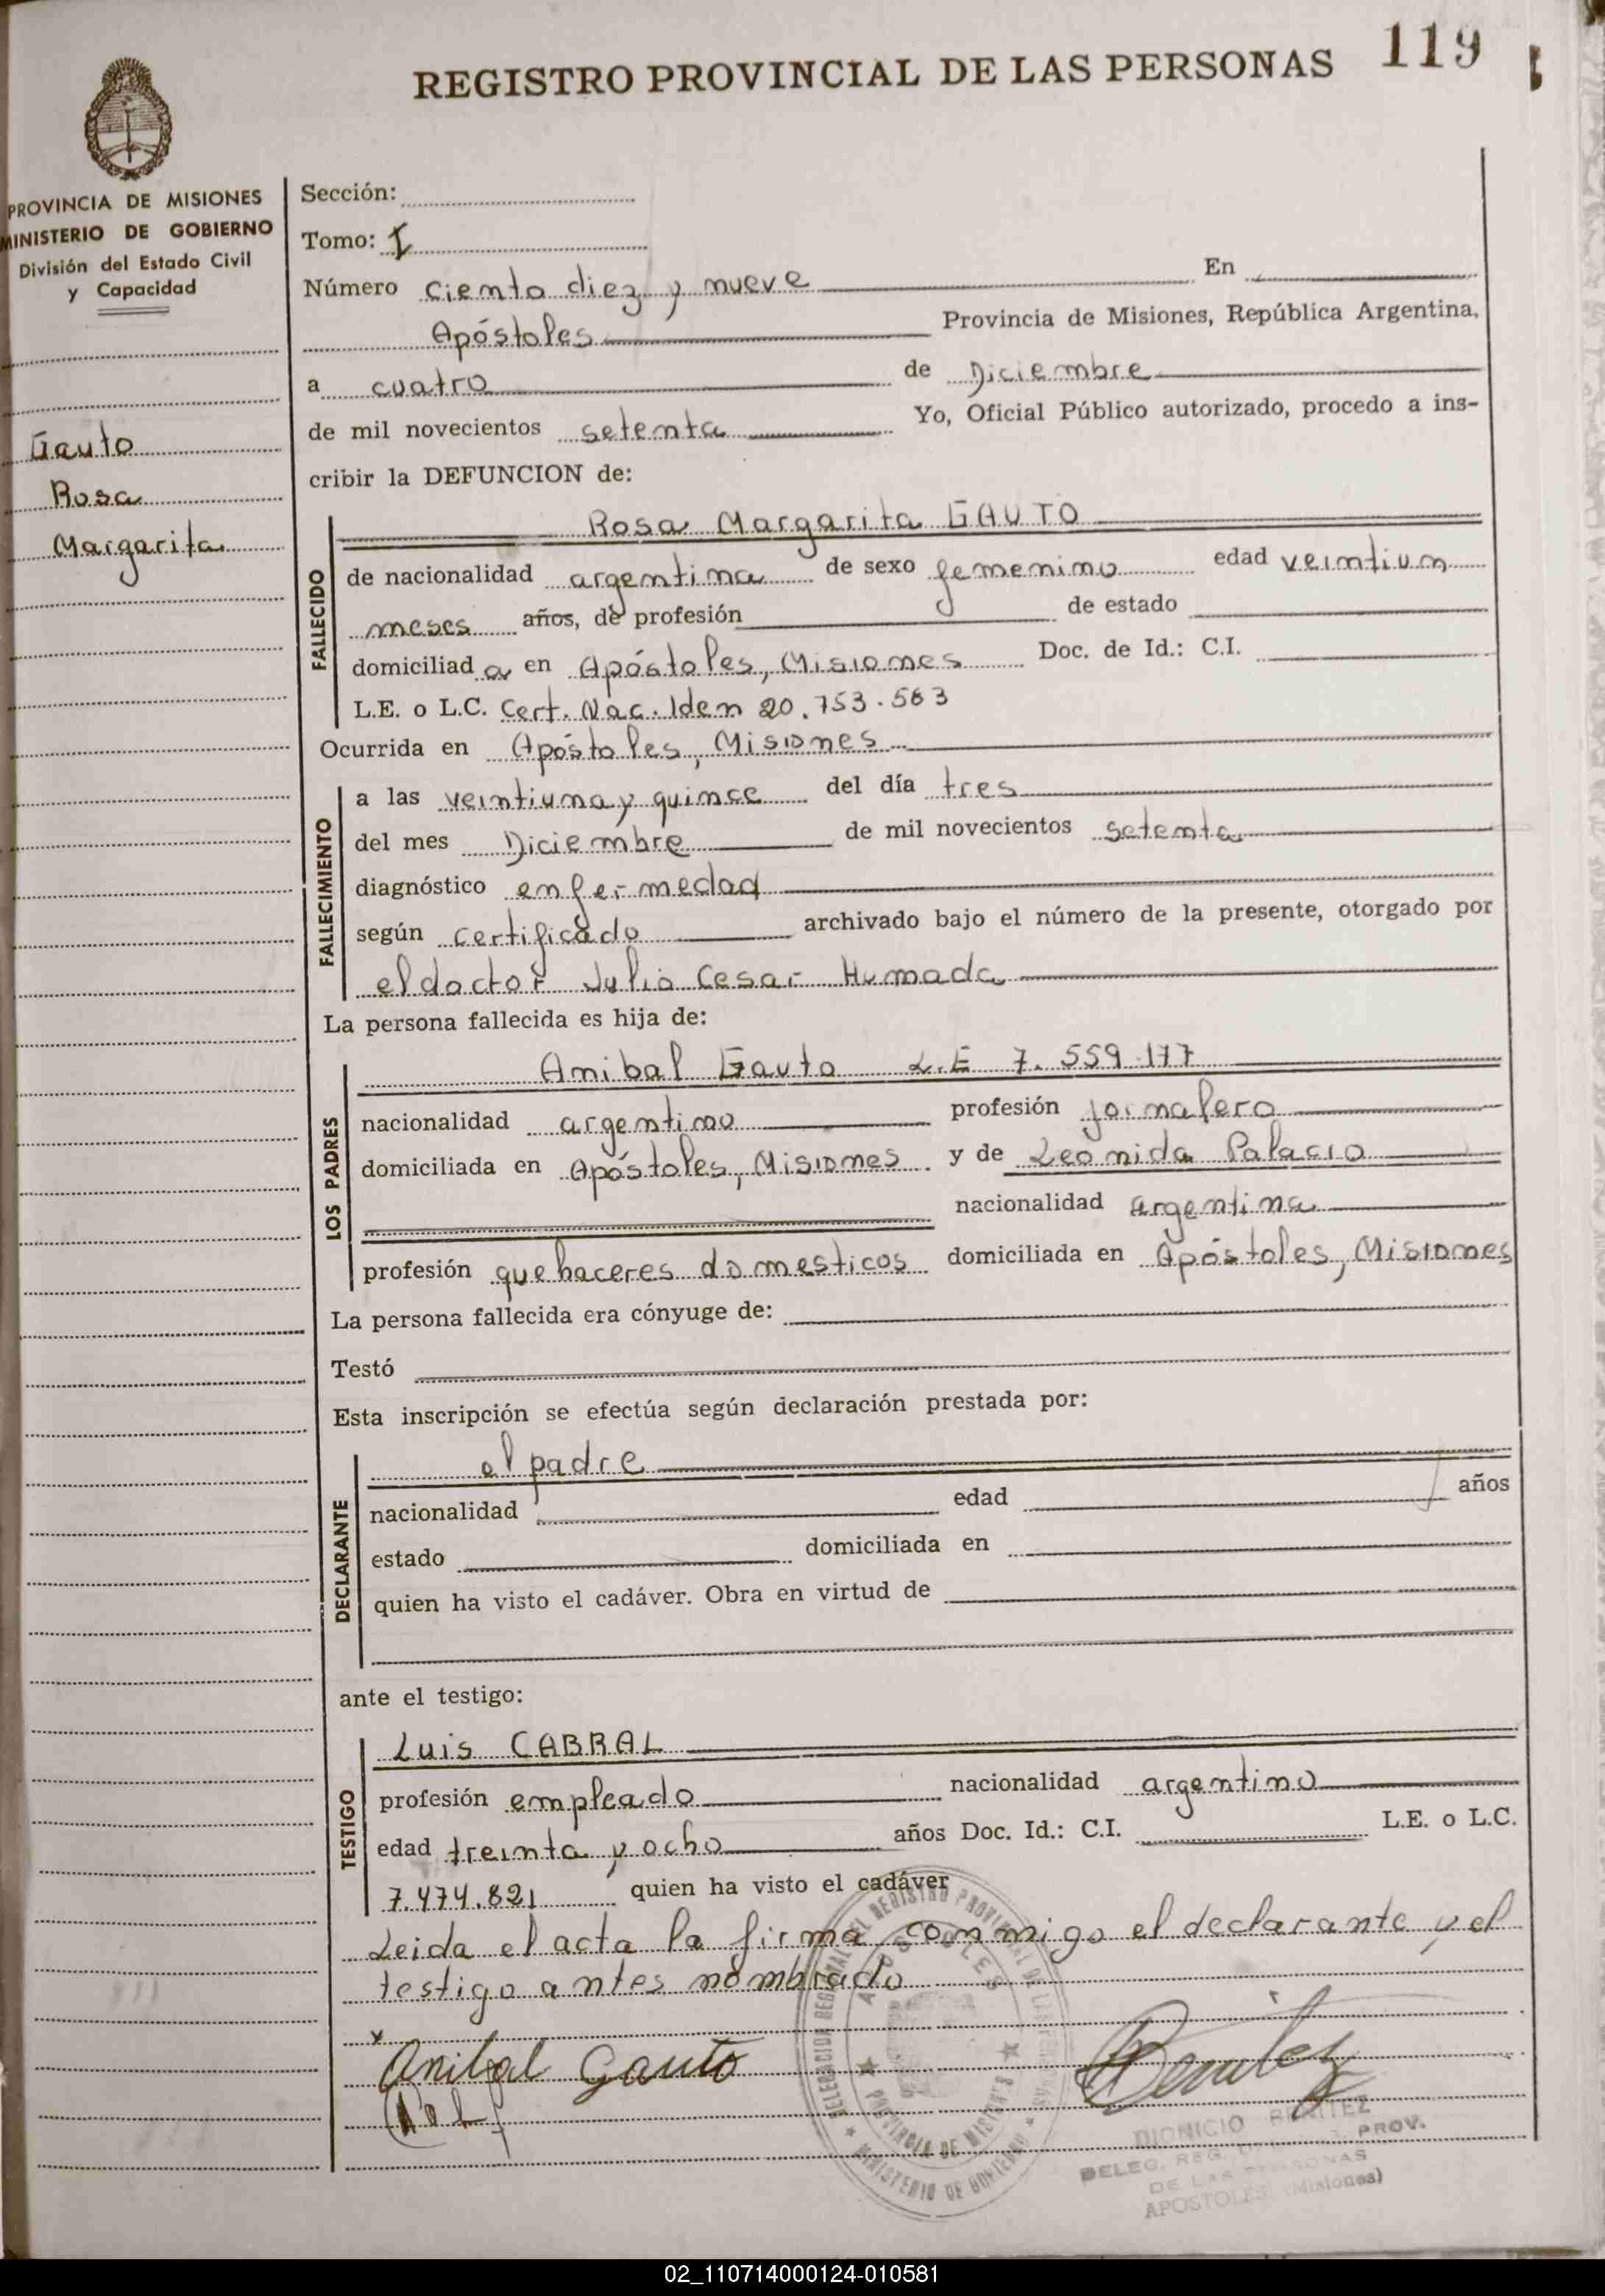 REGISTRO PROVINCIAL DE LAS PERSONAS 119
PROVINCIA DE MISIONES
MINISTERIO DE GOBIERNO
División del Estado Civil
y Capacidad
Gauto
Rosa
Margarita
Sección:
Tomo: I
Número Ciento diez y nueve En
Apóstoles Provincia de Misiones, República Argentina,
a cuatro de Diciembre
de mil novecientos setenta Yo, Oficial Público autorizado, procedo a ins-
cribir la DEFUNCION de:
FALLECIDO
Rosa Margarita GAUTO
de nacionalidad argentina de sexo femenino edad veintiun
meses años, de profesión de estado
domiciliada en Apóstoles, Misiones Doc. de Id.: C.I.
L.E. o L.C. Cert. Nac. Iden 20.753.563
Ocurrida en Apóstoles, Misiones
FALLECIMIENTO
a las veintiuna y quince del día tres
del mes Diciembre de mil novecientos setenta
diagnóstico enfermedad
según certificado archivado bajo el número de la presente, otorgado por
el doctor Julio Cesar Humada
La persona fallecida es hija de:
LOS PADRES
Anibal Gauto L.E 7.559.177
nacionalidad argentino profesión jornalero
domiciliada en Apóstoles, Misiones y de Leonida Palacio
nacionalidad argentina
profesión quehaceres domesticos domiciliada en Apóstoles, Misiones
La persona fallecida era cónyuge de:
Testó
Esta inscripción se efectúa según declaración prestada por:
DECLARANTE
el padre
nacionalidad edad años
estado domiciliada en
quien ha visto el cadáver. Obra en virtud de
ante el testigo:
TESTIGO
Luis CABRAL
profesión empleado nacionalidad argentino
edad treinta y ocho años Doc. Id.: C.I. L.E. o L.C.
7.474.821 quien ha visto el cadáver
Leida el acta la firma conmigo el declarante y el
testigo antes nombrado
x
Anibal Gauto
Benitez
DELEGACION REGIONAL DEL REGISTRO PROVINCIAL DE LAS PERSONAS
APOSTOLES
PROVINCIA DE MISIONES
MINISTERIO DE GOBIERNO
DIONICIO BENITEZ
DELEG. REG. PROV.
DE LAS PERSONAS
APOSTOLES (Misiones)
02_110714000124-010581